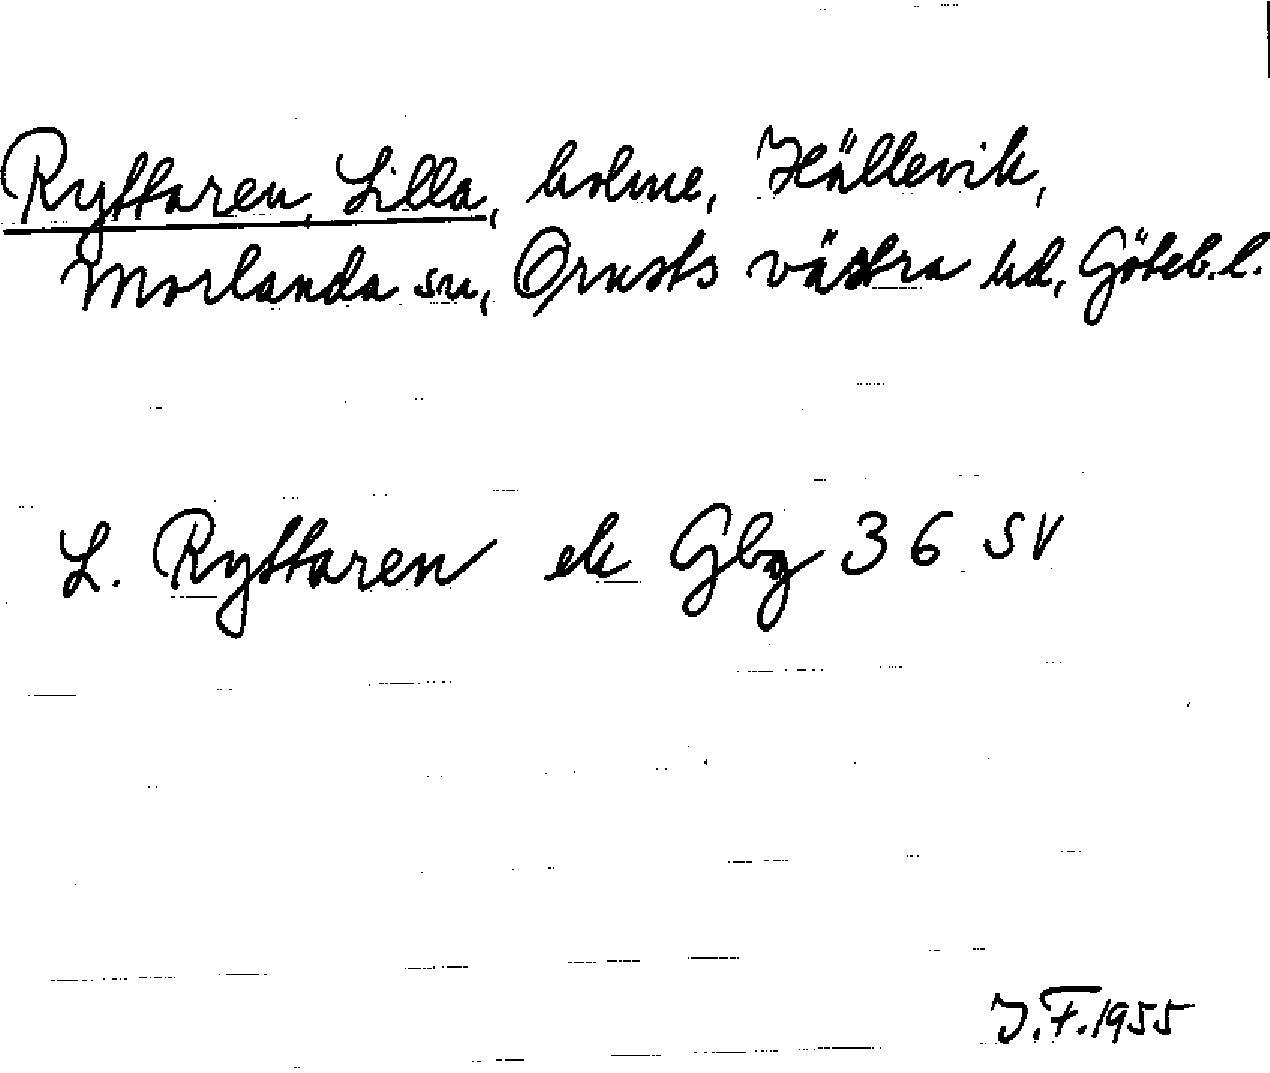 Ryttaren, Lilla, holme, Hällevik,
Morlanda sn, Orusts västra hd, Göteb. l.
L. Ryttaren ek Gbg 36 SV
J.F. 1955